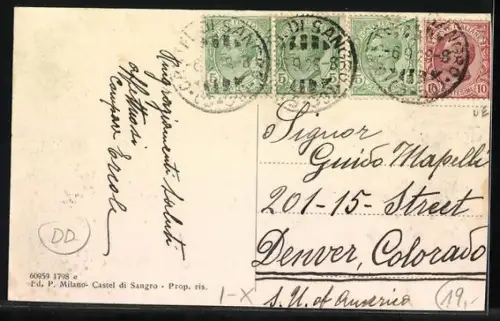 Ringraziamenti saluti
affettuosi
compare Ercole
DD
60959 1798 e
Ed. P. Milano- Castel di Sangro - Prop. ris.
DI SANGRO
5
DI SANGRO
5
5
10
Signor
Guido Mapelli
201-15- Street
Denver, Colorado
S. U. of America
1-X
19,-